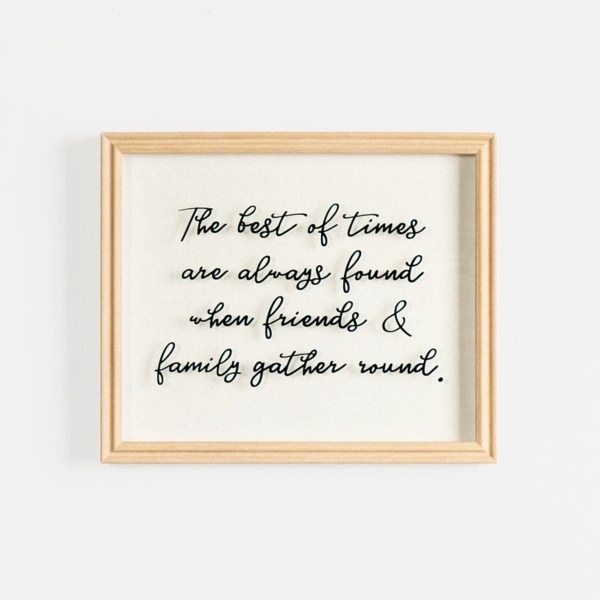 The best of times
are always found
when friends &
family gather round.